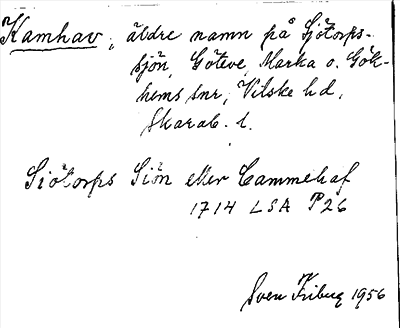 Kamhav, äldre namn på Sjötorps-
sjön, Göteve, Marka o. Gök-
hems snr, Vilske hd,
Skarab. l.
Siötorps Siön eller Cammehaf
1714 LSA P26
Sven Friberg 1956